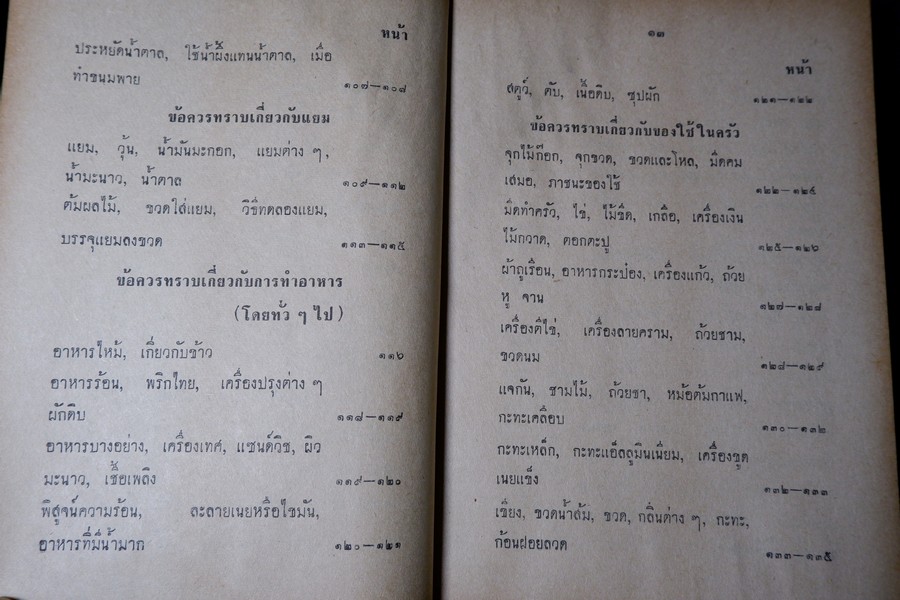 หน้า
ประหยัดน้ำตาล, ใช้น้ำผึ้งแทนน้ำตาล, เมื่อ
ทำขนมพาย ๑๐๗—๑๐๘
ข้อควรทราบเกี่ยวกับแยม
แยม, วุ้น, น้ำมันมะกอก, แยมต่าง ๆ,
น้ำมะนาว, น้ำตาล ๑๐๙—๑๑๒
ต้มผลไม้, ขวดใส่แยม, วิธีทดลองแยม,
บรรจุแยมลงขวด ๑๑๓—๑๑๕
ข้อควรทราบเกี่ยวกับการทำอาหาร
(โดยทั่ว ๆ ไป)
อาหารไหม้, เกี่ยวกับข้าว ๑๑๖
อาหารร้อน, พริกไทย, เครื่องปรุงต่าง ๆ
ผักดิบ ๑๑๘—๑๑๙
อาหารบางอย่าง, เครื่องเทศ, แซนด์วิช, ผิว
มะนาว, เชื้อเพลิง ๑๑๙—๑๒๐
พิสูจน์ความร้อน, ละลายเนยหรือไขมัน,
อาหารที่มีน้ำมาก ๑๒๐—๑๒๑
๑๓
หน้า
สตูว์, ตับ, เนื้อดิบ, ซุปผัก ๑๒๑—๑๒๒
ข้อควรทราบเกี่ยวกับของใช้ในครัว
จุกไม้ก๊อก, จุกขวด, ขวดและโหล, มีดคม
เสมอ, ภาชนะของใช้ ๑๒๒—๑๒๔
มีดทำครัว, ไข่, ไม้ขีด, เกลือ, เครื่องเงิน
ไม้กวาด, ตอกตะปู ๑๒๕—๑๒๖
ผ้าถูเรือน, อาหารกระป๋อง, เครื่องแก้ว, ถ้วย
หู จาน ๑๒๗—๑๒๘
เครื่องตีไข่, เครื่องลายคราม, ถ้วยชาม,
ขวดนม ๑๒๘—๑๒๙
แจกัน, ชามไม้, ถ้วยชา, หม้อต้มกาแฟ,
กะทะเคลือบ ๑๓๐—๑๓๒
กะทะเหล็ก, กะทะแอ็ลลูมินเนียม, เครื่องขูด
เนยแข็ง ๑๓๒—๑๓๓
เขียง, ขวดน้ำส้ม, ขวด, กลิ่นต่าง ๆ, กะทะ,
ก้อนฝอยลวด ๑๓๓—๑๓๕